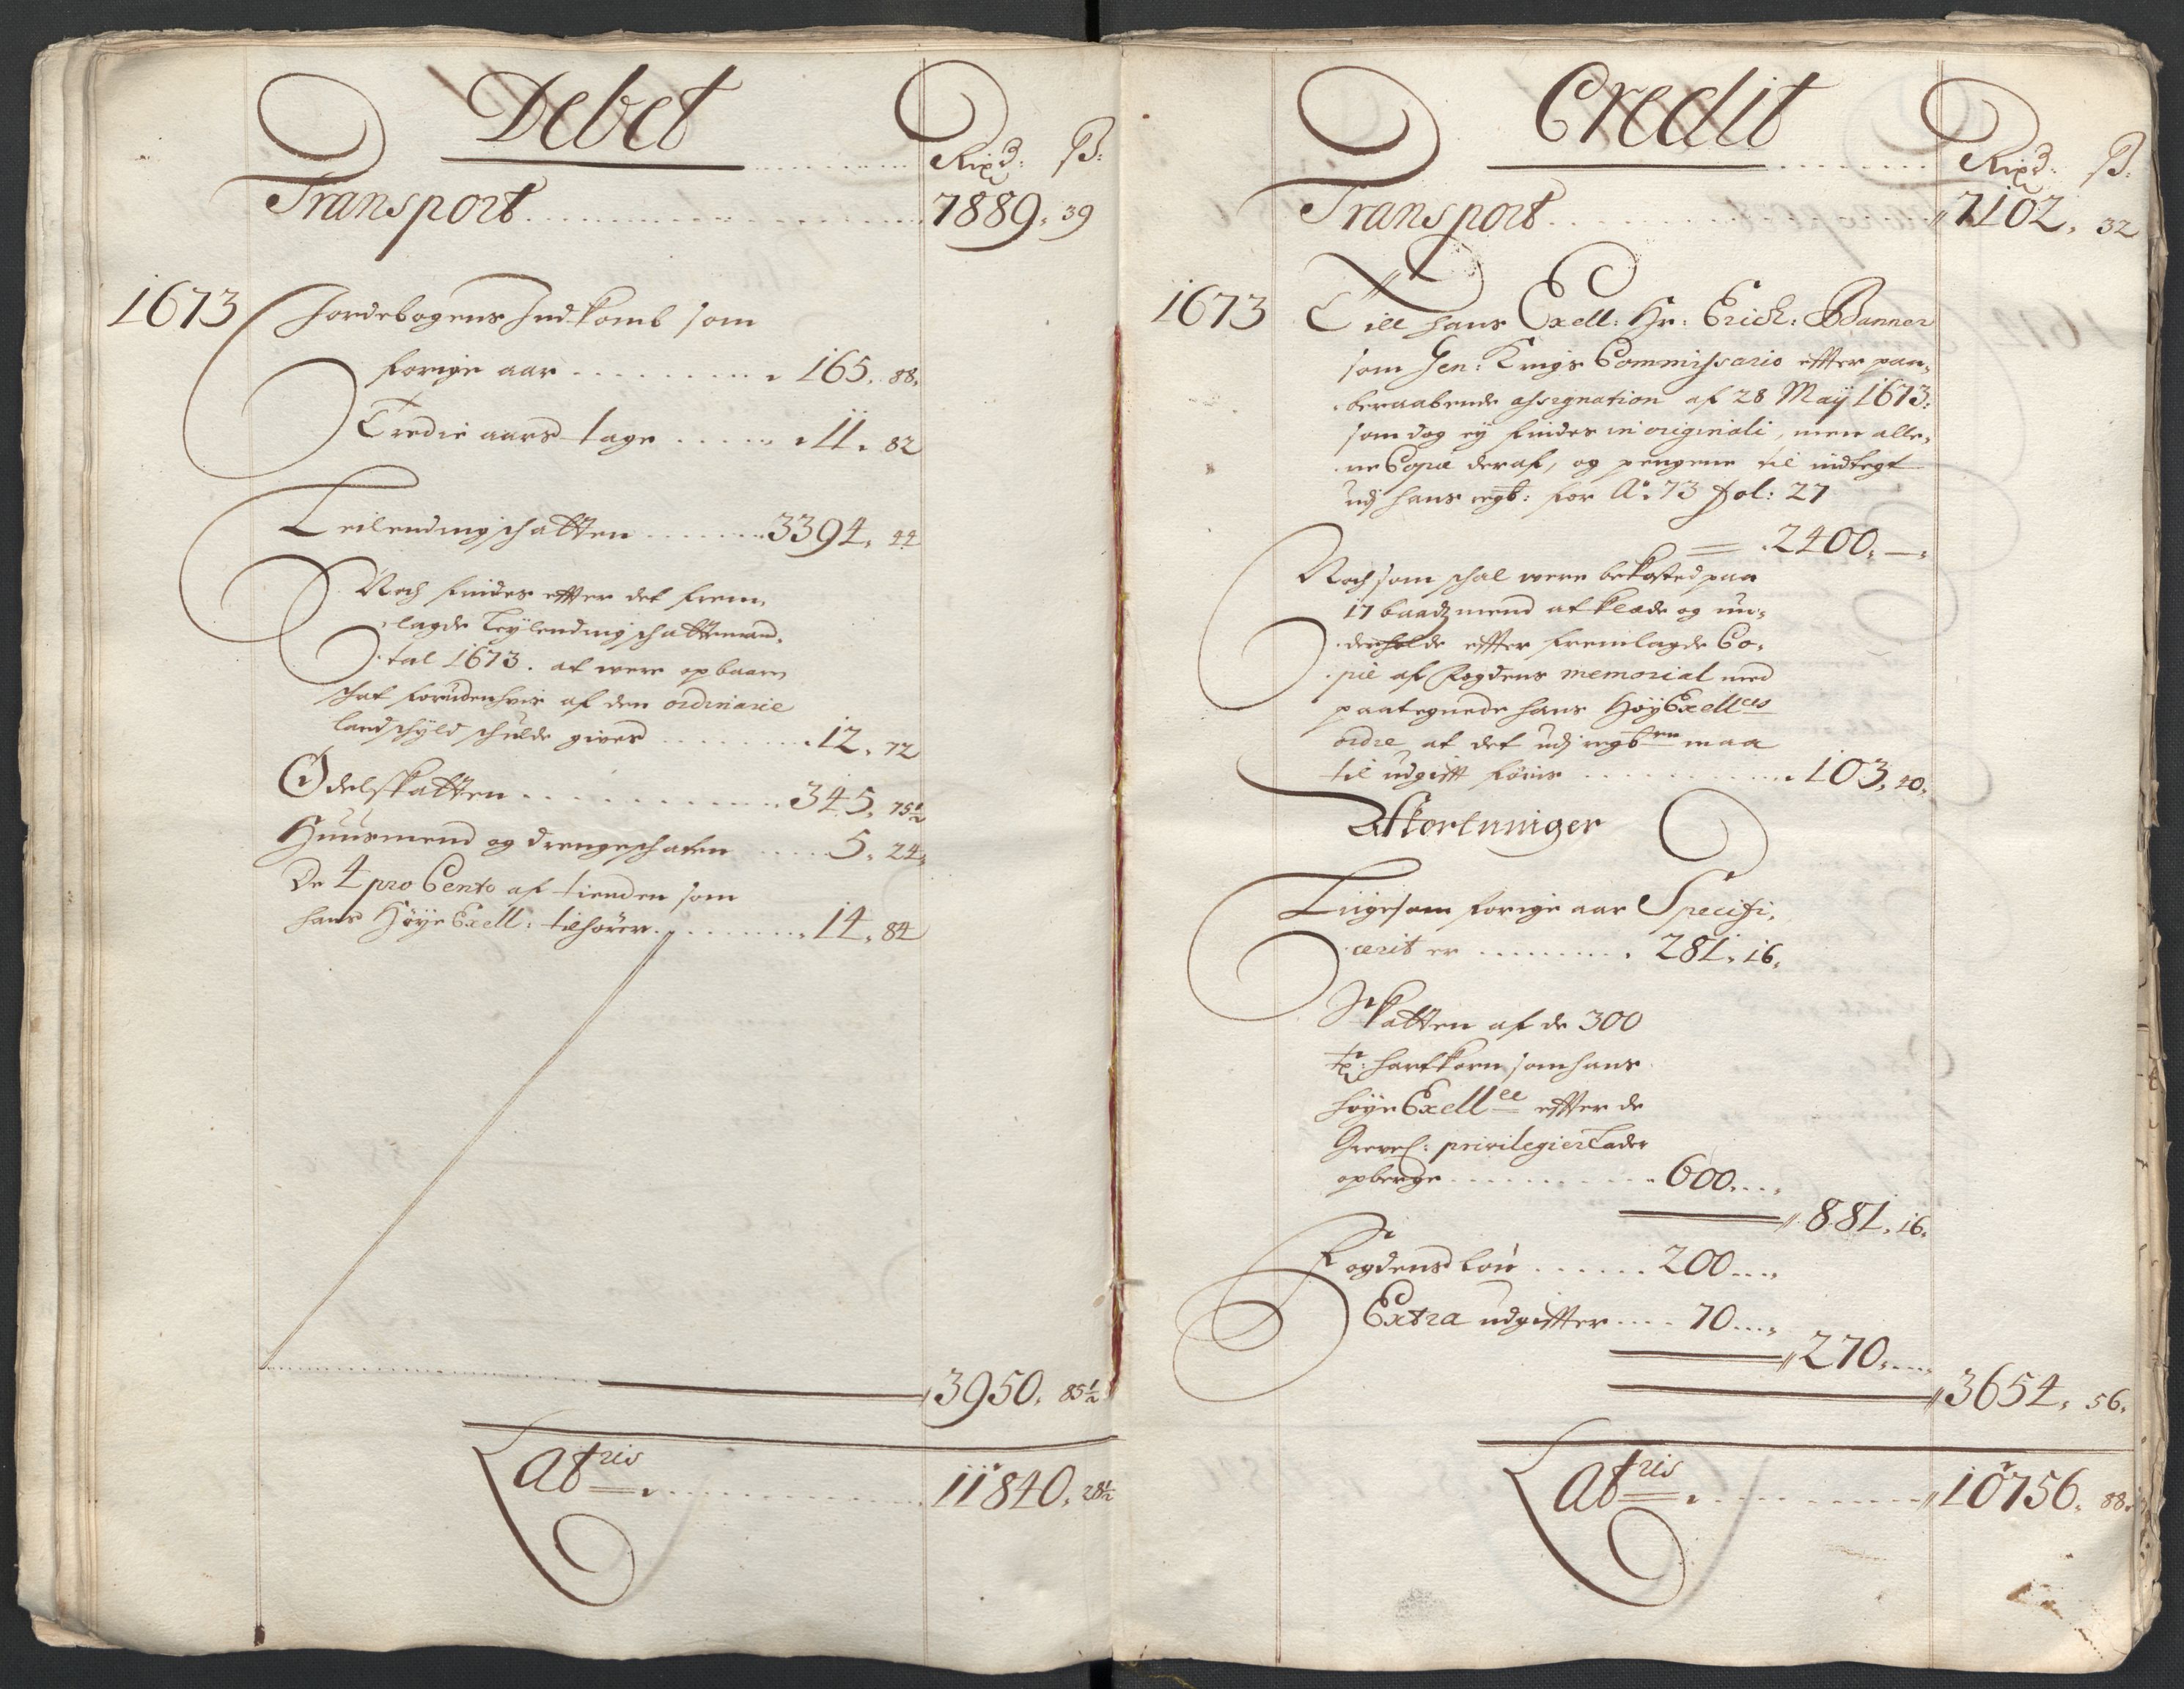 Debet
Rixd: ß:
Transport 7889. 39
1673 Jordebogens Indkomb som
forige aar 165. 88.
Tredie aars tage 11. 82
Leilendingschatten 3394. 44
Noch findes effter det frem
lagde Leÿlendingschattemand
tal 1673. at were opbaaren
schat forudenhvis af den ordinarie
landschÿld schulde gives 12. 72
Odelsskatten 345. 75½
Huusmend og drengeschaten 5. 24.
De 4 pro Cento af tienden som
hans Høÿe Exell: tilhører 14. 84
3950. 85½
Latris 11840. 28½
Credit
Rixd: ß:
Transport 7102. 32
1673 Till hans Exell: Hr: Erich: Banner
som Gen: Krigs Commissario effter paa,
beraabende assignation af 28 Maÿ 1673:
som dog eÿ findes in originali, men alle,
ne Copie deraf, og pengene til indtegt
udj hans regb: for Ao: 73 fol: 27
2400. —
Noch som schal were bekosted paa
17 baadzmend at klæde og un,
derholde effter fremlagde Co,
pie af fogdens memorial med
paategnede hans HøÿExellces
ordre at det udj regben maa
til udgifft føris 103. 40.
Afkortninger
Liigesom forige aar Specifi,
cerit er 281. 16.
Skatten af de 300
tr: hartkorn som hans
høÿe Exellce effter de
Grevel: privilegier lader
opberge 600.
881. 16.
Fogdens løn 200.
Extra udgiffter 70.
270.
3654. 56.
Latris 10756. 88.